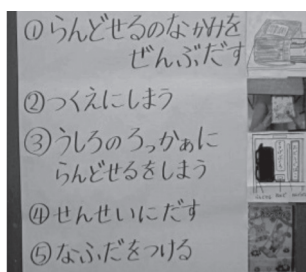 ①らんどせるのなかみを
ぜんぶだす
②つくえにしまう
③うしろのろっかぁに
らんどせるをしまう
④せんせいにだす
⑤なふだをつける